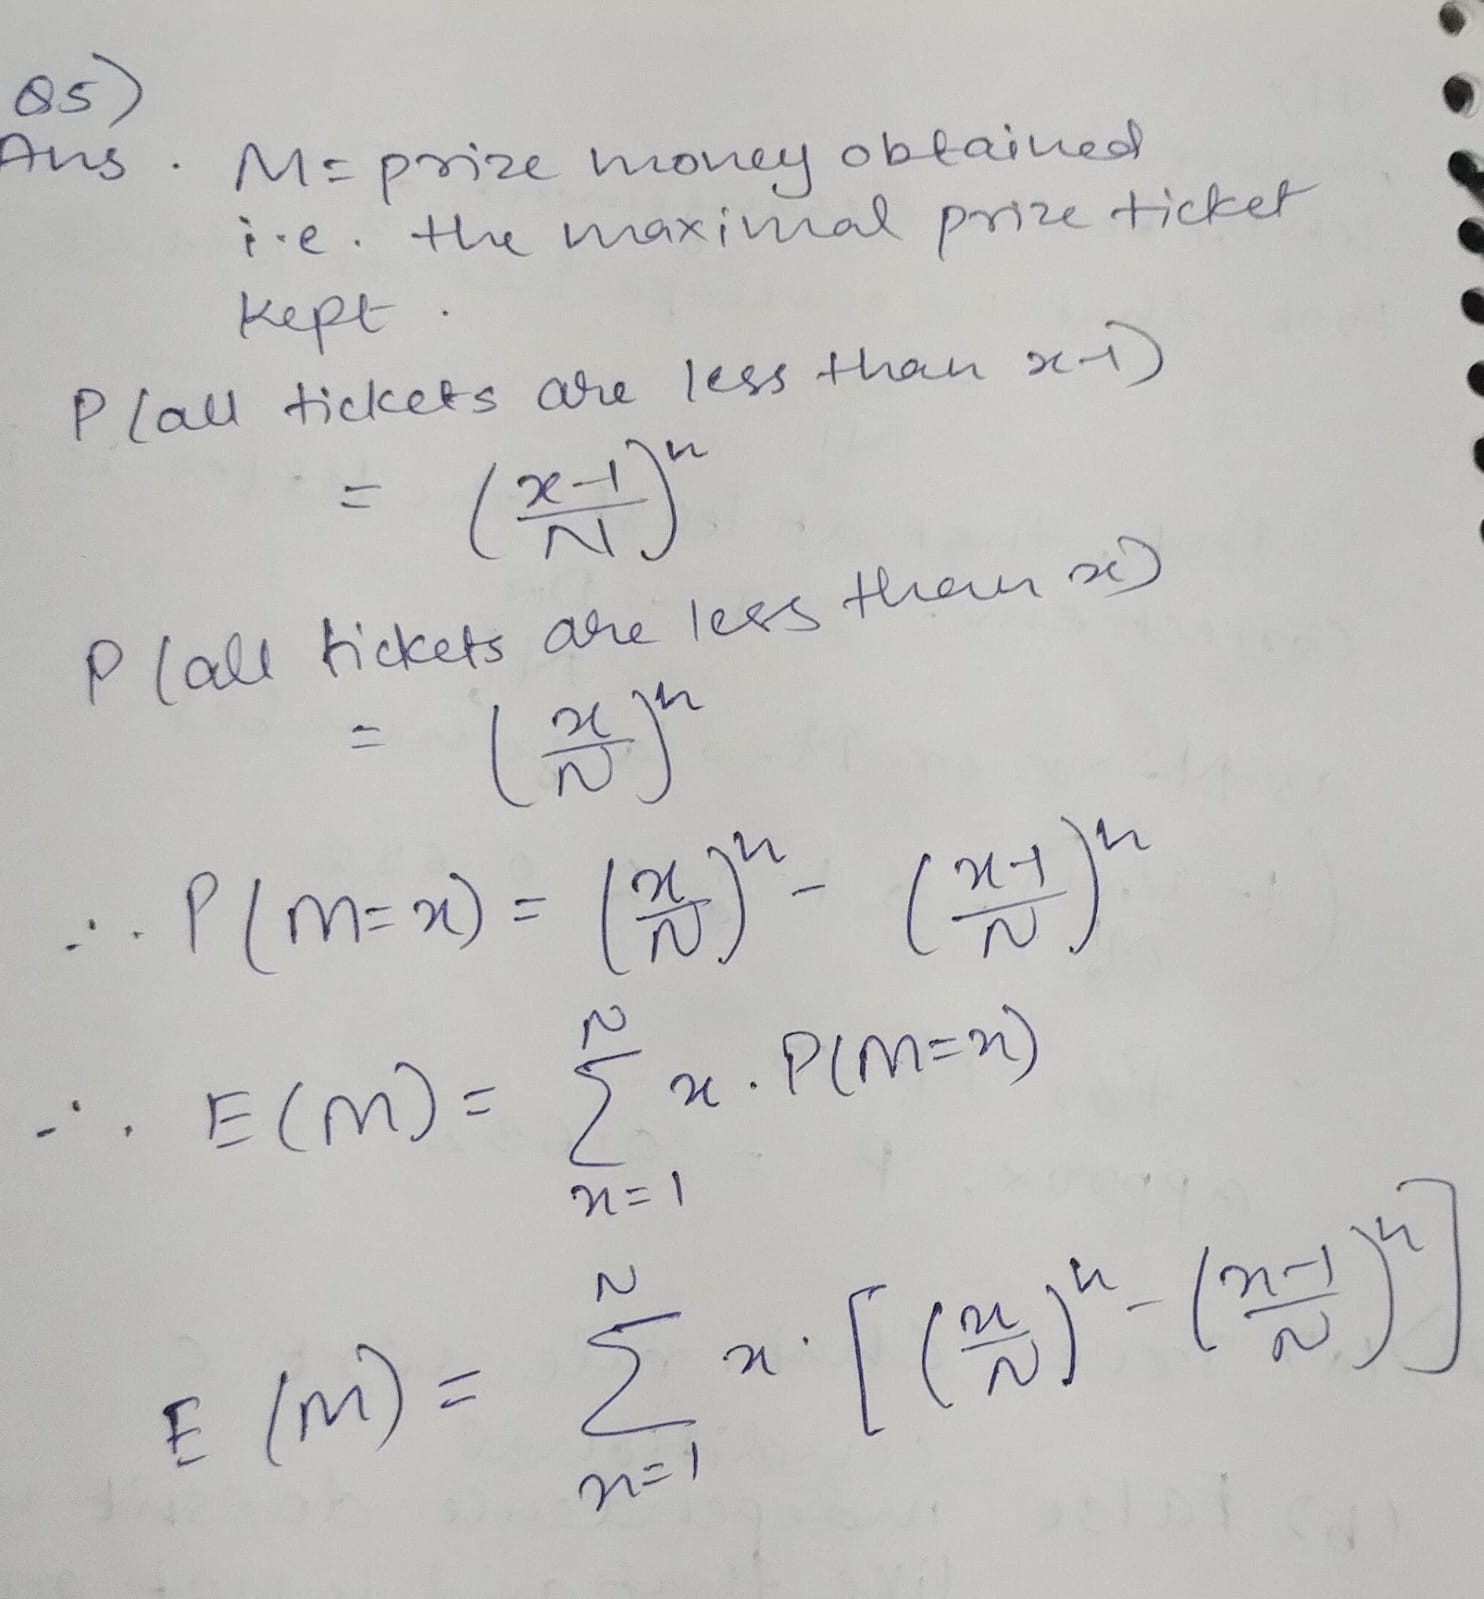 Q5)
Ans. M = prize money obtained
i.e. the maximal prize ticket
kept.
P(all tickets are less than x-1)
= (x-1/N)^n
P(all tickets are less than x)
= (x/N)^n
∴ P(M=x) = (x/N)^n - (x-1/N)^n
∴ E(M) = N Σ x=1 x. P(M=x)
E(M) = N Σ x=1 x. [(x/N)^n - (x-1/N)^n]